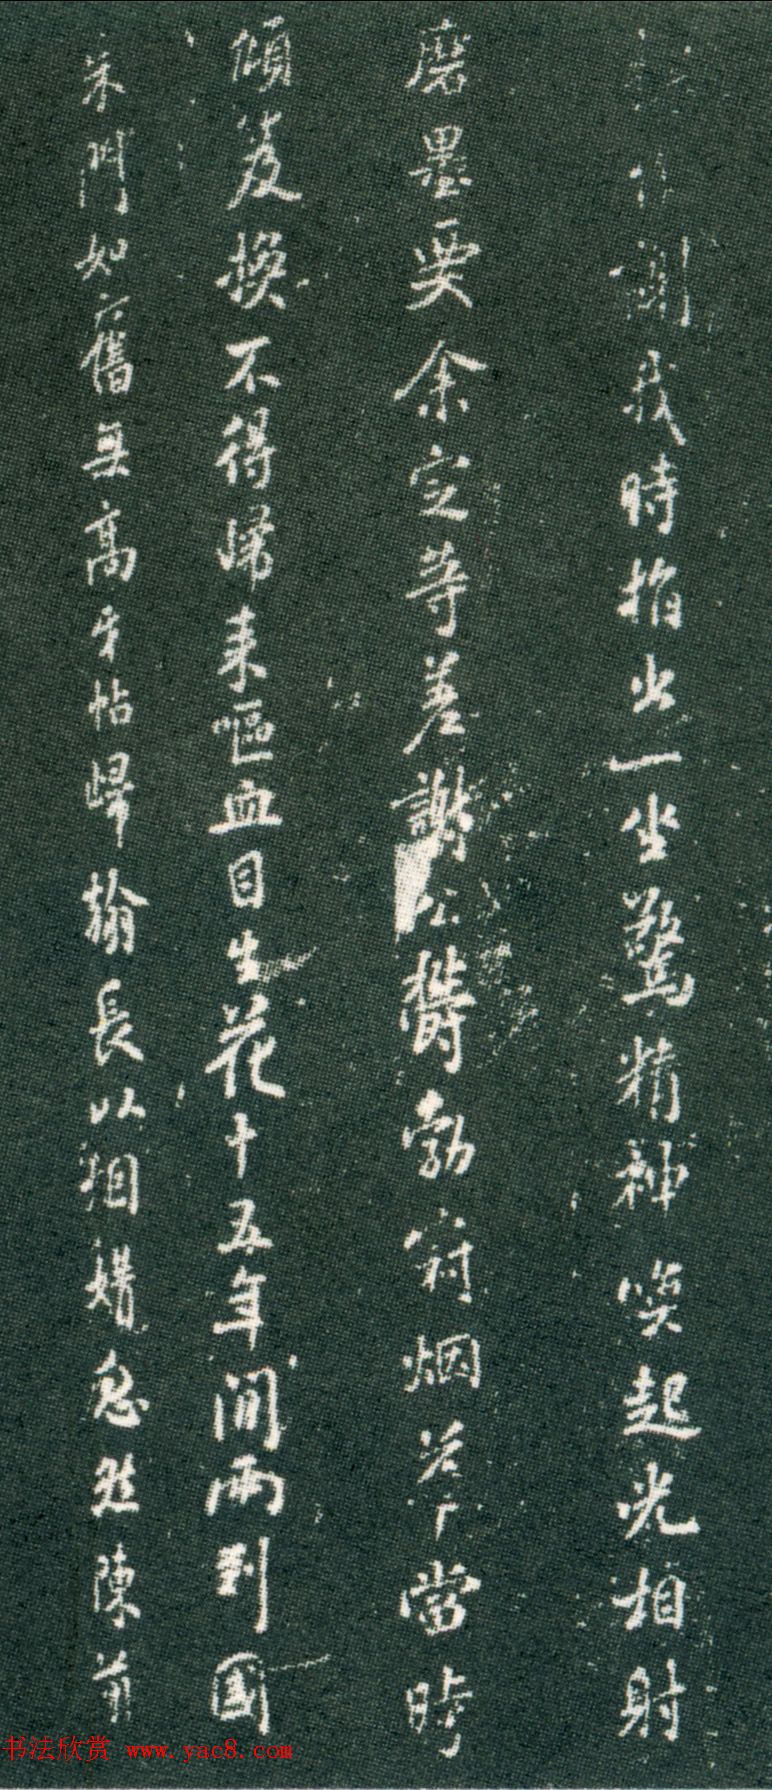 開我時指出一坐驚精神喚起光相射
磨墨要余定等差謝公鬱勃冠煙花當時
傾笈換不得歸來嘔血目生花十五年間兩到國
朱門如舊無高牙帖歸翰長以相媚忽然陳前
书法欣赏 www.yac8.com